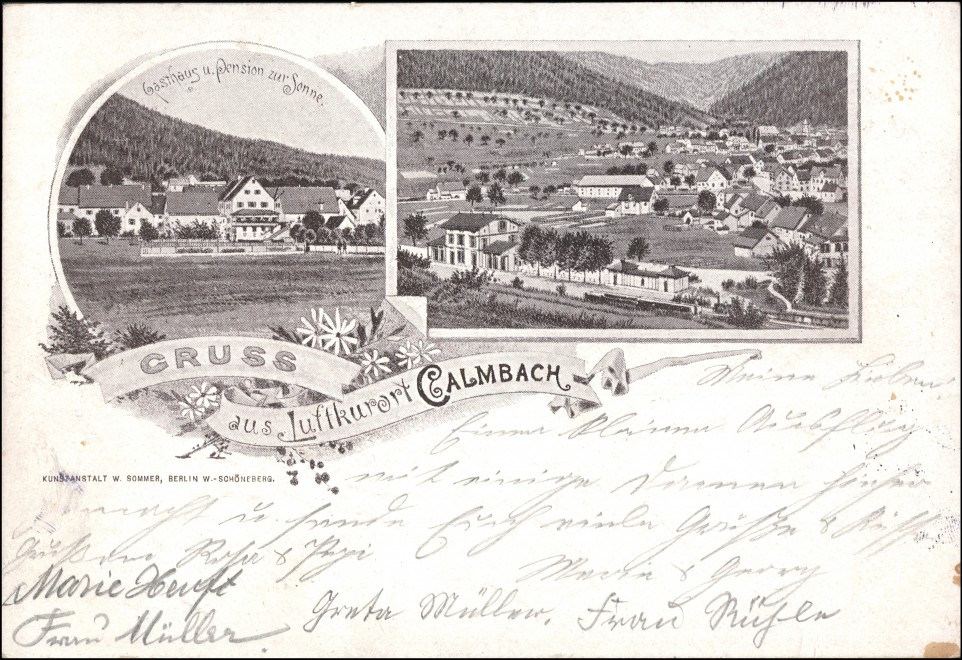 Gasthaus u. Pension zur Sonne.
GRUSS
aus Luftkurort CALMBACH
KUNSTANSTALT W. SOMMER, BERLIN W.-SCHÖNEBERG.
Meine Lieben
Einen kleinen Ausflug
mit einige Damen hierher
gemacht u. sende Euch viele Grüße & Küsse
Rosa & Pepi
Marie & Georg
Marie
Greta Müller, Frau Rühle
Frau Müller